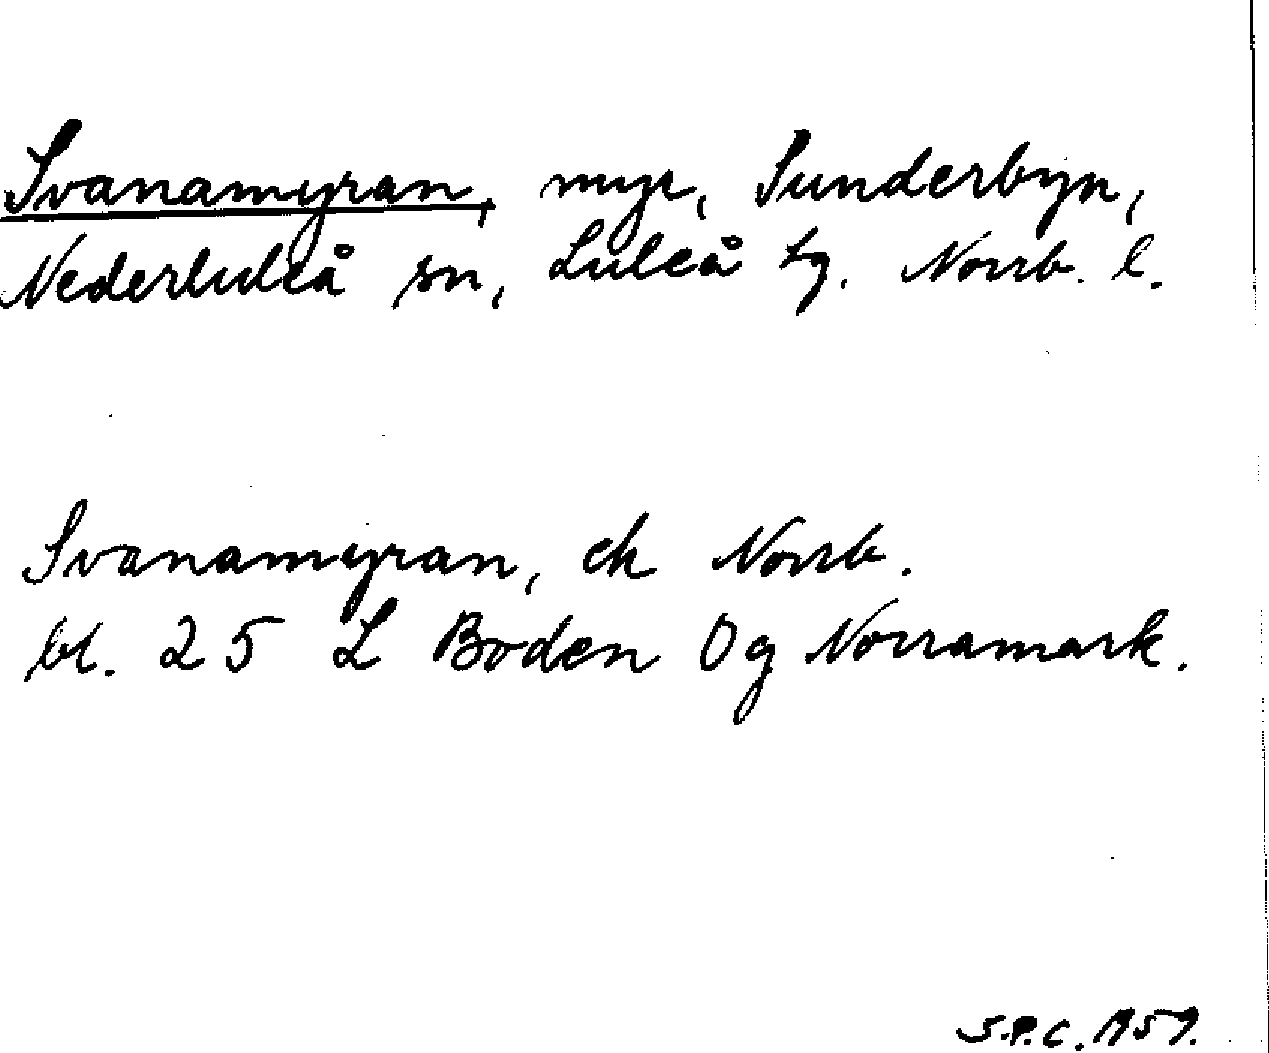 Svanamyran, myr, Sunderbyn,
Nederluleå sn, Luleå tg. Norrb. l.
Svanamyran, ek Norrb.
bl. 25 L Boden Og Norramark.
S.P.C. 1959.